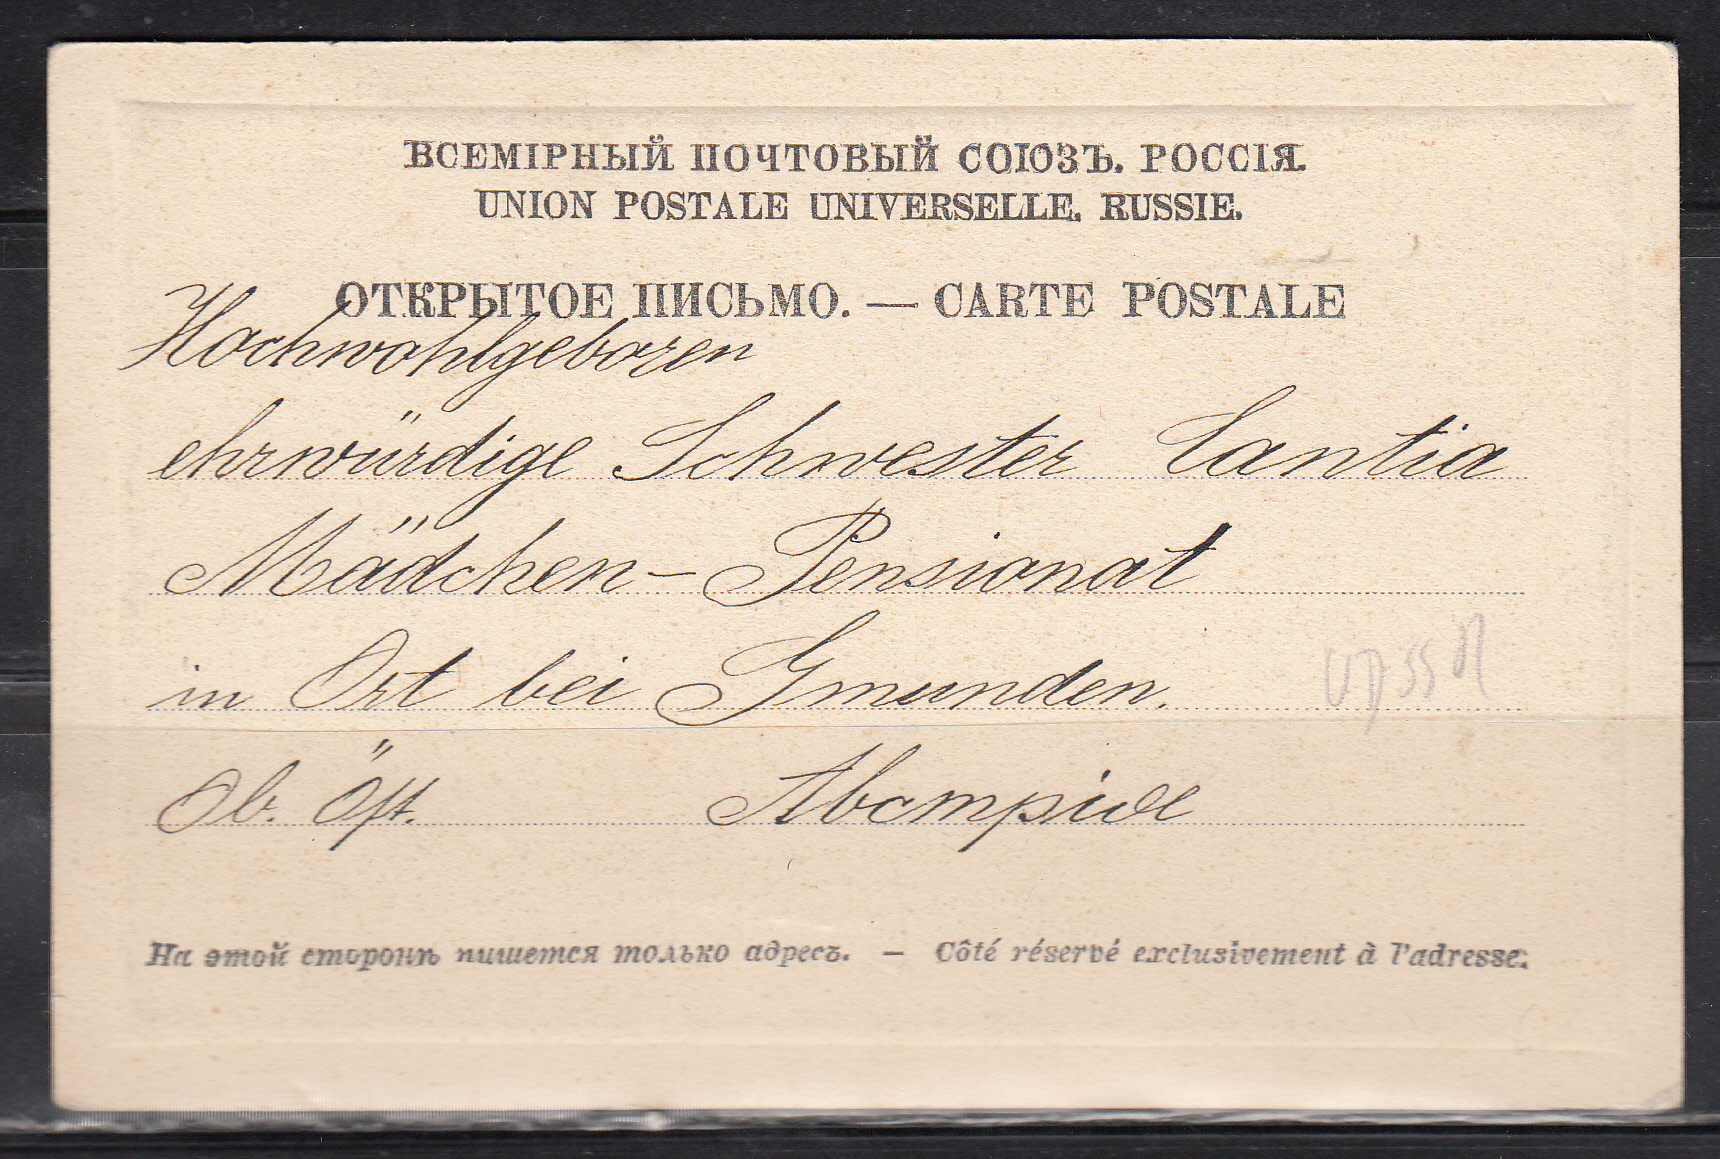 ВСЕМІРНЫЙ ПОЧТОВЫЙ СОЮЗЪ. РОССІЯ.
UNION POSTALE UNIVERSELLE. RUSSIE.
ОТКРЫТОЕ ПИСЬМО. — CARTE POSTALE
Hochwohlgeboren
ehrwürdige Schwester
Mädchen-Pensionat
in Ort bei Gmunden.
Ob. Öst. Австрія
На этой сторонѣ пишется только адресъ. — Côté réservé exclusivement à l'adresse.